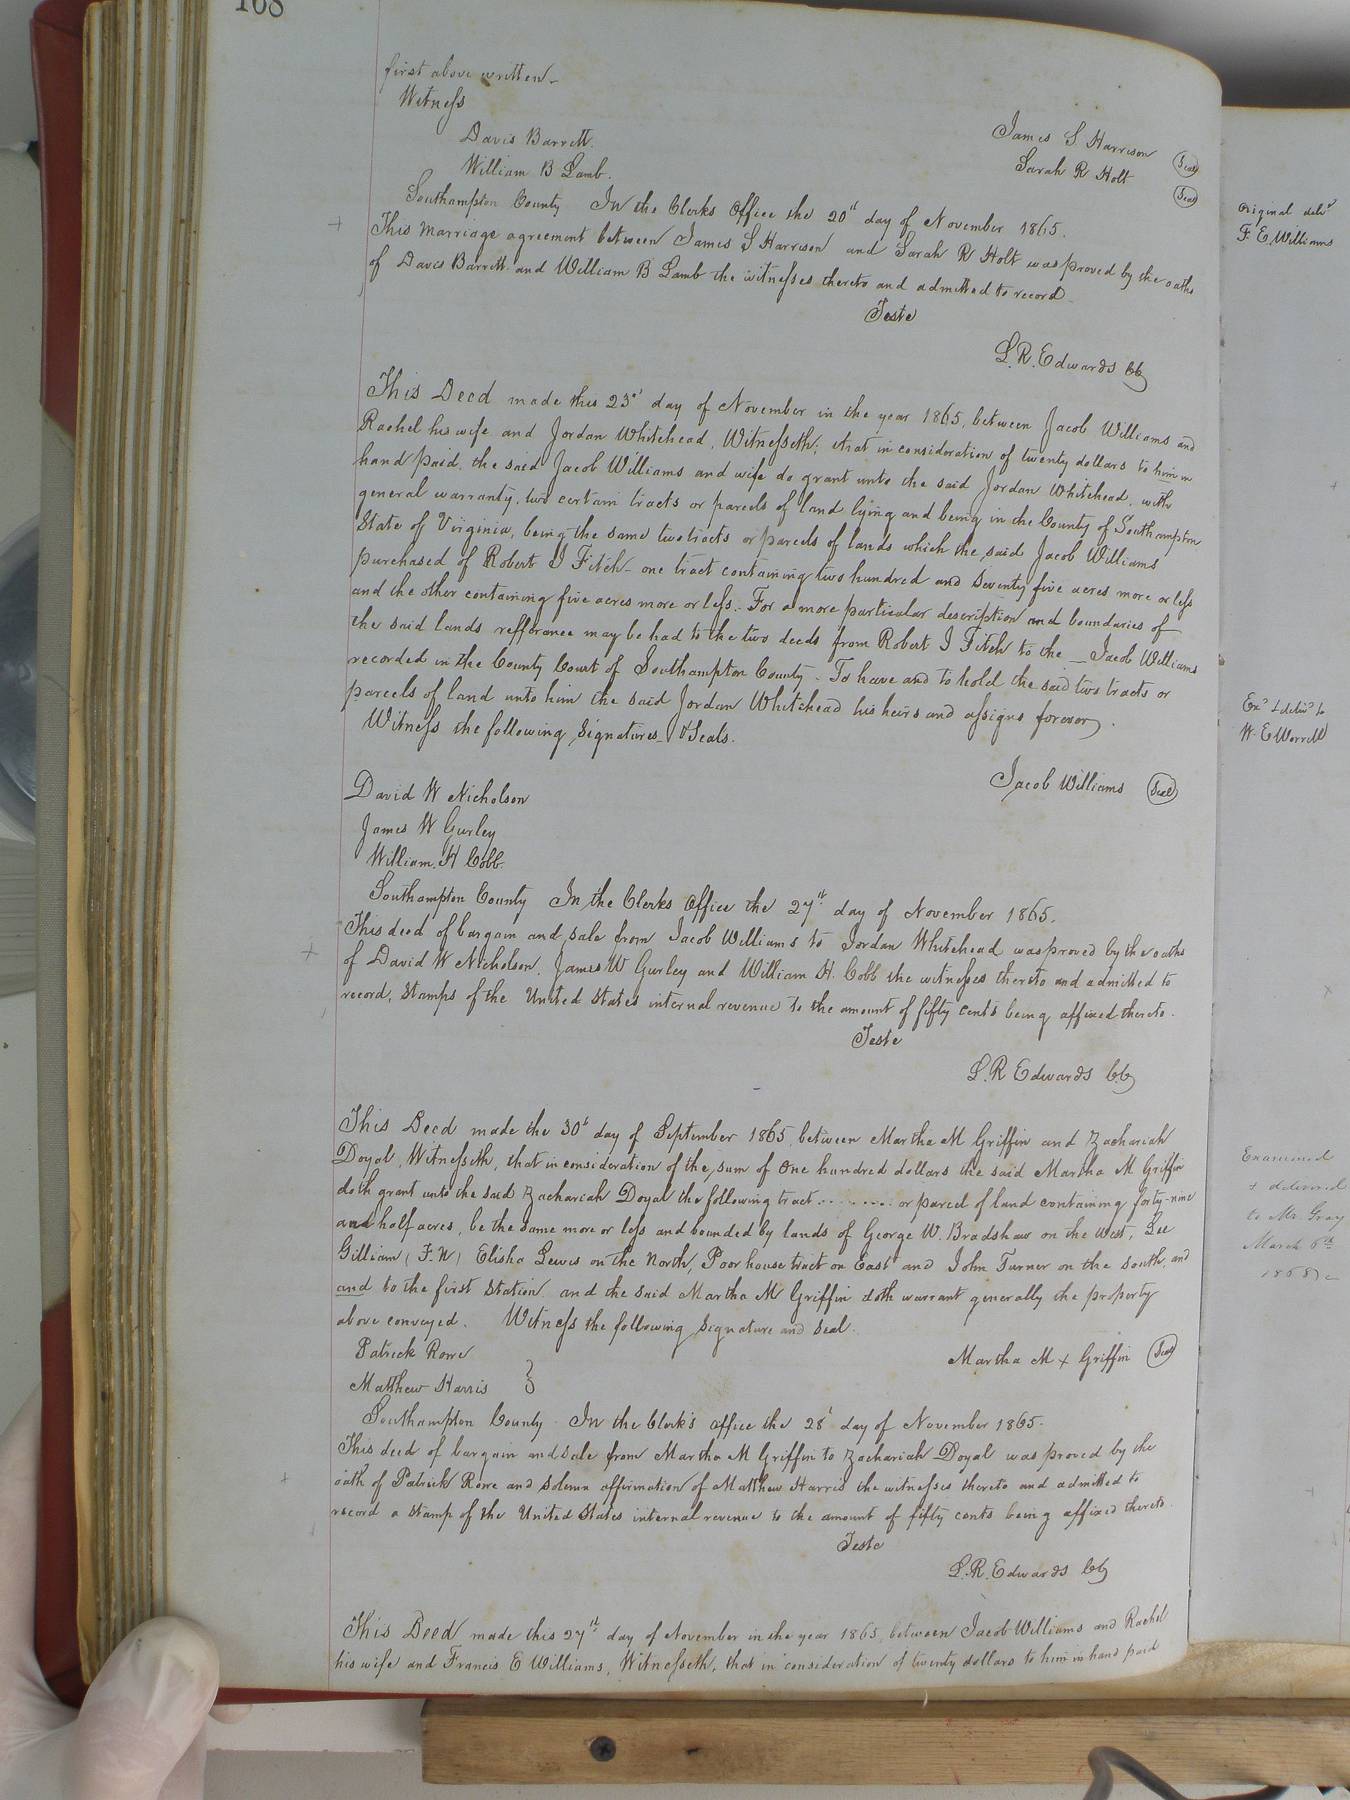 168
first above written
Witness
Davis Barrett.
William B Lamb.
James S Harrison (Seal)
Sarah R Holt (Seal)
Southampton County In the Clerks Office the 20th day of November 1865.
This marriage agreement between James S Harrison and Sarah R Holt was proved by the oaths
of Davis Barrett and William B Lamb the witnesses thereto and admitted to record
Teste
L. R. Edwards CC
This Deed made this 23d day of November in the year 1865, between Jacob Williams and
Rachel his wife and Jordan Whitehead, Witnesseth; that in consideration of twenty dollars to him in
hand paid, the said Jacob Williams and wife do grant unto the said Jordan Whitehead, with
general warranty, two certain tracts or parcels of land lying and being in the County of Southampton
State of Virginia, being the same two tracts or parcels of lands which the said Jacob Williams
purchased of Robert J Fitch – one tract containing two hundred and seventy five acres more or less
and the other containing five acres more or less. For a more particular description and boundaries of
the said lands refferance may be had to the two deeds from Robert J Fitch to the _ Jacob Williams
recorded in the County Court of Southampton County – To have and to hold the said two tracts or
parcels of land unto him the said Jordan Whitehead his heirs and assigns forever.
Witness the following signatures & Seals.
Jacob Williams (Seal)
David W Nicholson
James W Gurley
William H Cobb.
Southampton County In the Clerks Office the 27th day of November 1865.
This deed of bargain and sale from Jacob Williams to Jordan Whitehead was proved by the oaths
of David W Nicholson, James W Gurley and William H. Cobb the witnesses thereto and admitted to
record, stamps of the United States internal revenue to the amount of fifty cents being affixed thereto.
Teste
L. R Edwards CC
This Deed made the 30th day of September 1865, between Martha M Griffin and Zachariah
Doyal, Witnesseth, that in consideration of the sum of One hundred dollars the said Martha M Griffin
doth grant unto the said Zachariah Doyal the following tract ........ or parcel of land containing forty-nine
and half acres, be the same more or less and bounded by lands of George W. Bradshaw on the West, Lee
Gilliam (F.N) Elisha Lewis on the North, Poor house tract on East and John Turner on the south, and
and to the first Station and the said Martha M Griffin doth warrant generally the property
above conveyed. Witness the following signature and seal.
Patrick Rowe
Matthew Harris
Martha M x Griffin (Seal)
Southampton County In the Clerk's office the 28th day of November 1865.
This deed of bargain and sale from Martha M Griffin to Zachariah Doyal was proved by the
oath of Patrick Rowe and solemn affirmation of Matthew Harris the witnesses thereto and admitted to
record a stamp of the United States internal revenue to the amount of fifty cents being affixed thereto
Teste
L. R. Edwards CC
This Deed made this 27th day of November in the year 1865, between Jacob Williams and Rachel
his wife and Francis E Williams, Witnesseth, that in consideration of twenty dollars to him in hand paid
Original deliv'd
F. E. Williams
Ex'd & deliv'd to
W. E Worrell
Examined
+ delivered
to Mr. Gray
March 6th
1868